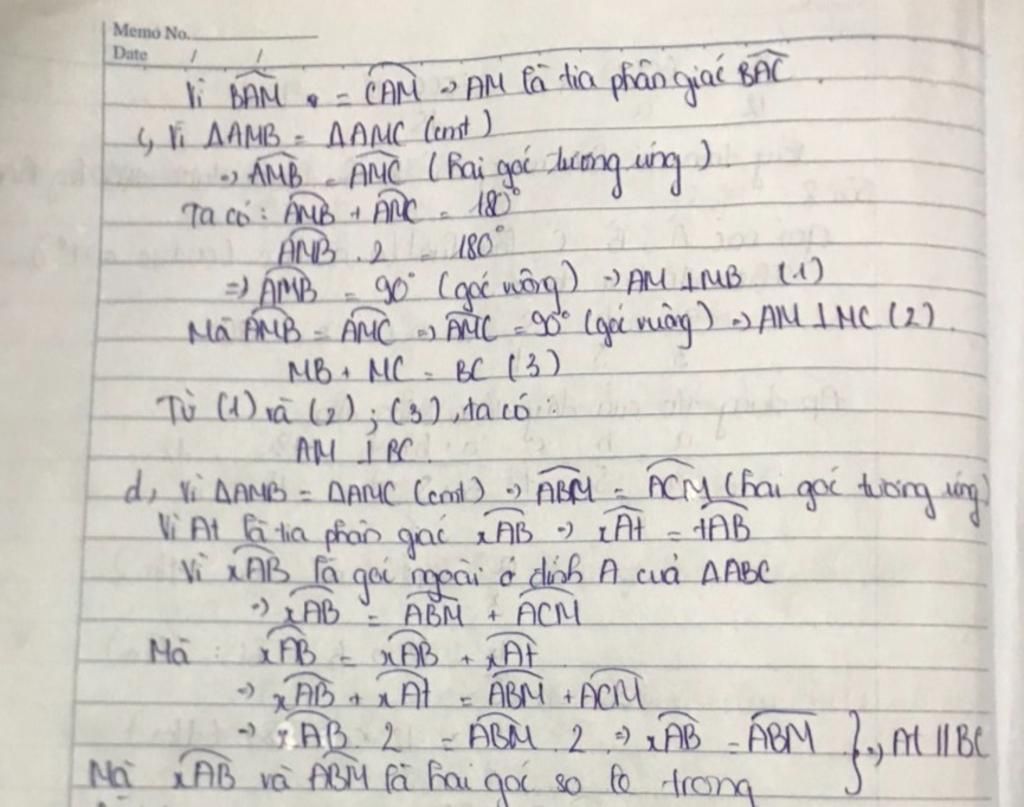 Memo No.
Date / /
Vì BAM = CAM => AM là tia phân giác BAC
c, Vì ΔAMB = ΔAMC (cmt)
=> AMB = AMC (hai góc tương ứng)
Ta có: AMB + AMC = 180°
AMB . 2 = 180°
=> AMB = 90° (góc vuông) => AM ⊥ MB (1)
Mà AMB = AMC => AMC = 90° (góc vuông) => AM ⊥ MC (2)
MB + MC = BC (3)
Từ (1) và (2) ; (3), ta có
AM ⊥ BC
d, Vì ΔAMB = ΔAMC (cmt) => ABM = ACM (hai góc tương ứng)
Vì At là tia phân giác xAB => xAt = tAB
Vì xAB là góc ngoài ở đỉnh A của ΔABC
=> xAB = ABM + ACM
Mà : xAB = xAB + xAt
=> xAB + xAt = ABM + ACM
=> xAB . 2 = ABM . 2 => xAB = ABM } => At // BC
Mà xAB và ABM là hai góc so le trong